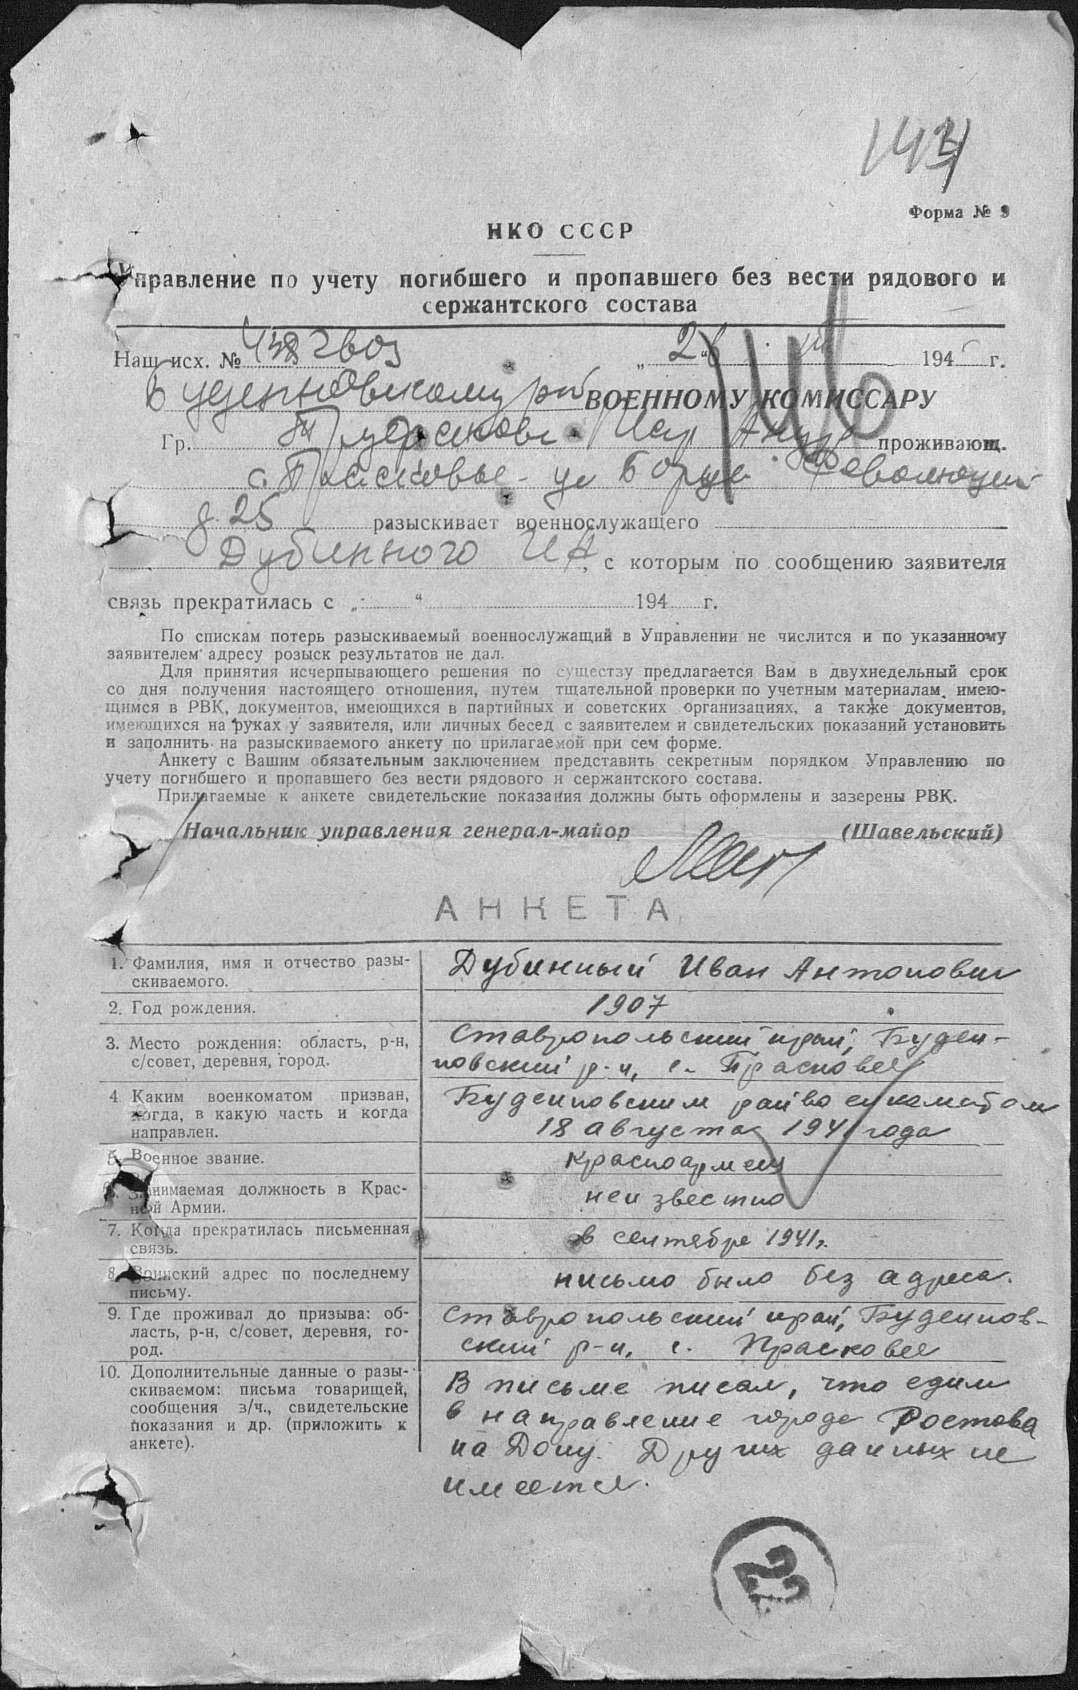 Форма № 9
НКО СССР
Управление по учету погибшего и пропавшего без вести рядового и
сержантского состава
Наш исх. №
194 г.
Буденновскому ВОЕННОМУ КОМИССАРУ
Гр. проживающ.
с. Прасковья ул Борцы Революции
д 25 разыскивает военнослужащего
Дубинного ИА, с которым по сообщению заявителя
связь прекратилась с „ “ 194 г.
По спискам потерь разыскиваемый военнослужащий в Управлении не числится и по указанному
заявителем адресу розыск результатов не дал.
Для принятия исчерпывающего решения по существу предлагается Вам в двухнедельный срок
со дня получения настоящего отношения, путем тщательной проверки по учетным материалам, имею-
щимся в РВК, документов, имеющихся в партийных и советских организациях, а также документов,
имеющихся на руках у заявителя, или личных бесед с заявителем и свидетельских показаний установить
и заполнить на разыскиваемого анкету по прилагаемой при сем форме.
Анкету с Вашим обязательным заключением представить секретным порядком Управлению по
учету погибшего и пропавшего без вести рядового и сержантского состава.
Прилагаемые к анкете свидетельские показания должны быть оформлены и заверены РВК.
Начальник управления генерал-майор (Шавельский)
АНКЕТА
1. Фамилия, имя и отчество разы-
скиваемого.
Дубинный Иван Антонович
2. Год рождения.
1907
3. Место рождения: область, р-н,
с/совет, деревня, город.
Ставропольский край, Буден-
новский р-н, с. Прасковея
4 Каким военкоматом призван,
когда, в какую часть и когда
направлен.
Буденновским райвоенкоматом
18 августа 1941 года
5. Военное звание.
Красноармеец
6. Занимаемая должность в Крас-
ной Армии.
неизвестно
7. Когда прекратилась письменная
связь.
в сентябре 1941г.
8. Воинский адрес по последнему
письму.
письмо было без адреса.
9. Где проживал до призыва: об-
ласть, р-н, с/совет, деревня, го-
род.
Ставропольский край, Буденнов-
ский р-н, с. Прасковея
10. Дополнительные данные о разы-
скиваемом: письма товарищей,
сообщения з/ч., свидетельские
показания и др. (приложить к
анкете).
В письме писал, что едим
в направление города Ростова
на Дону. Других данных не
имеется.
23